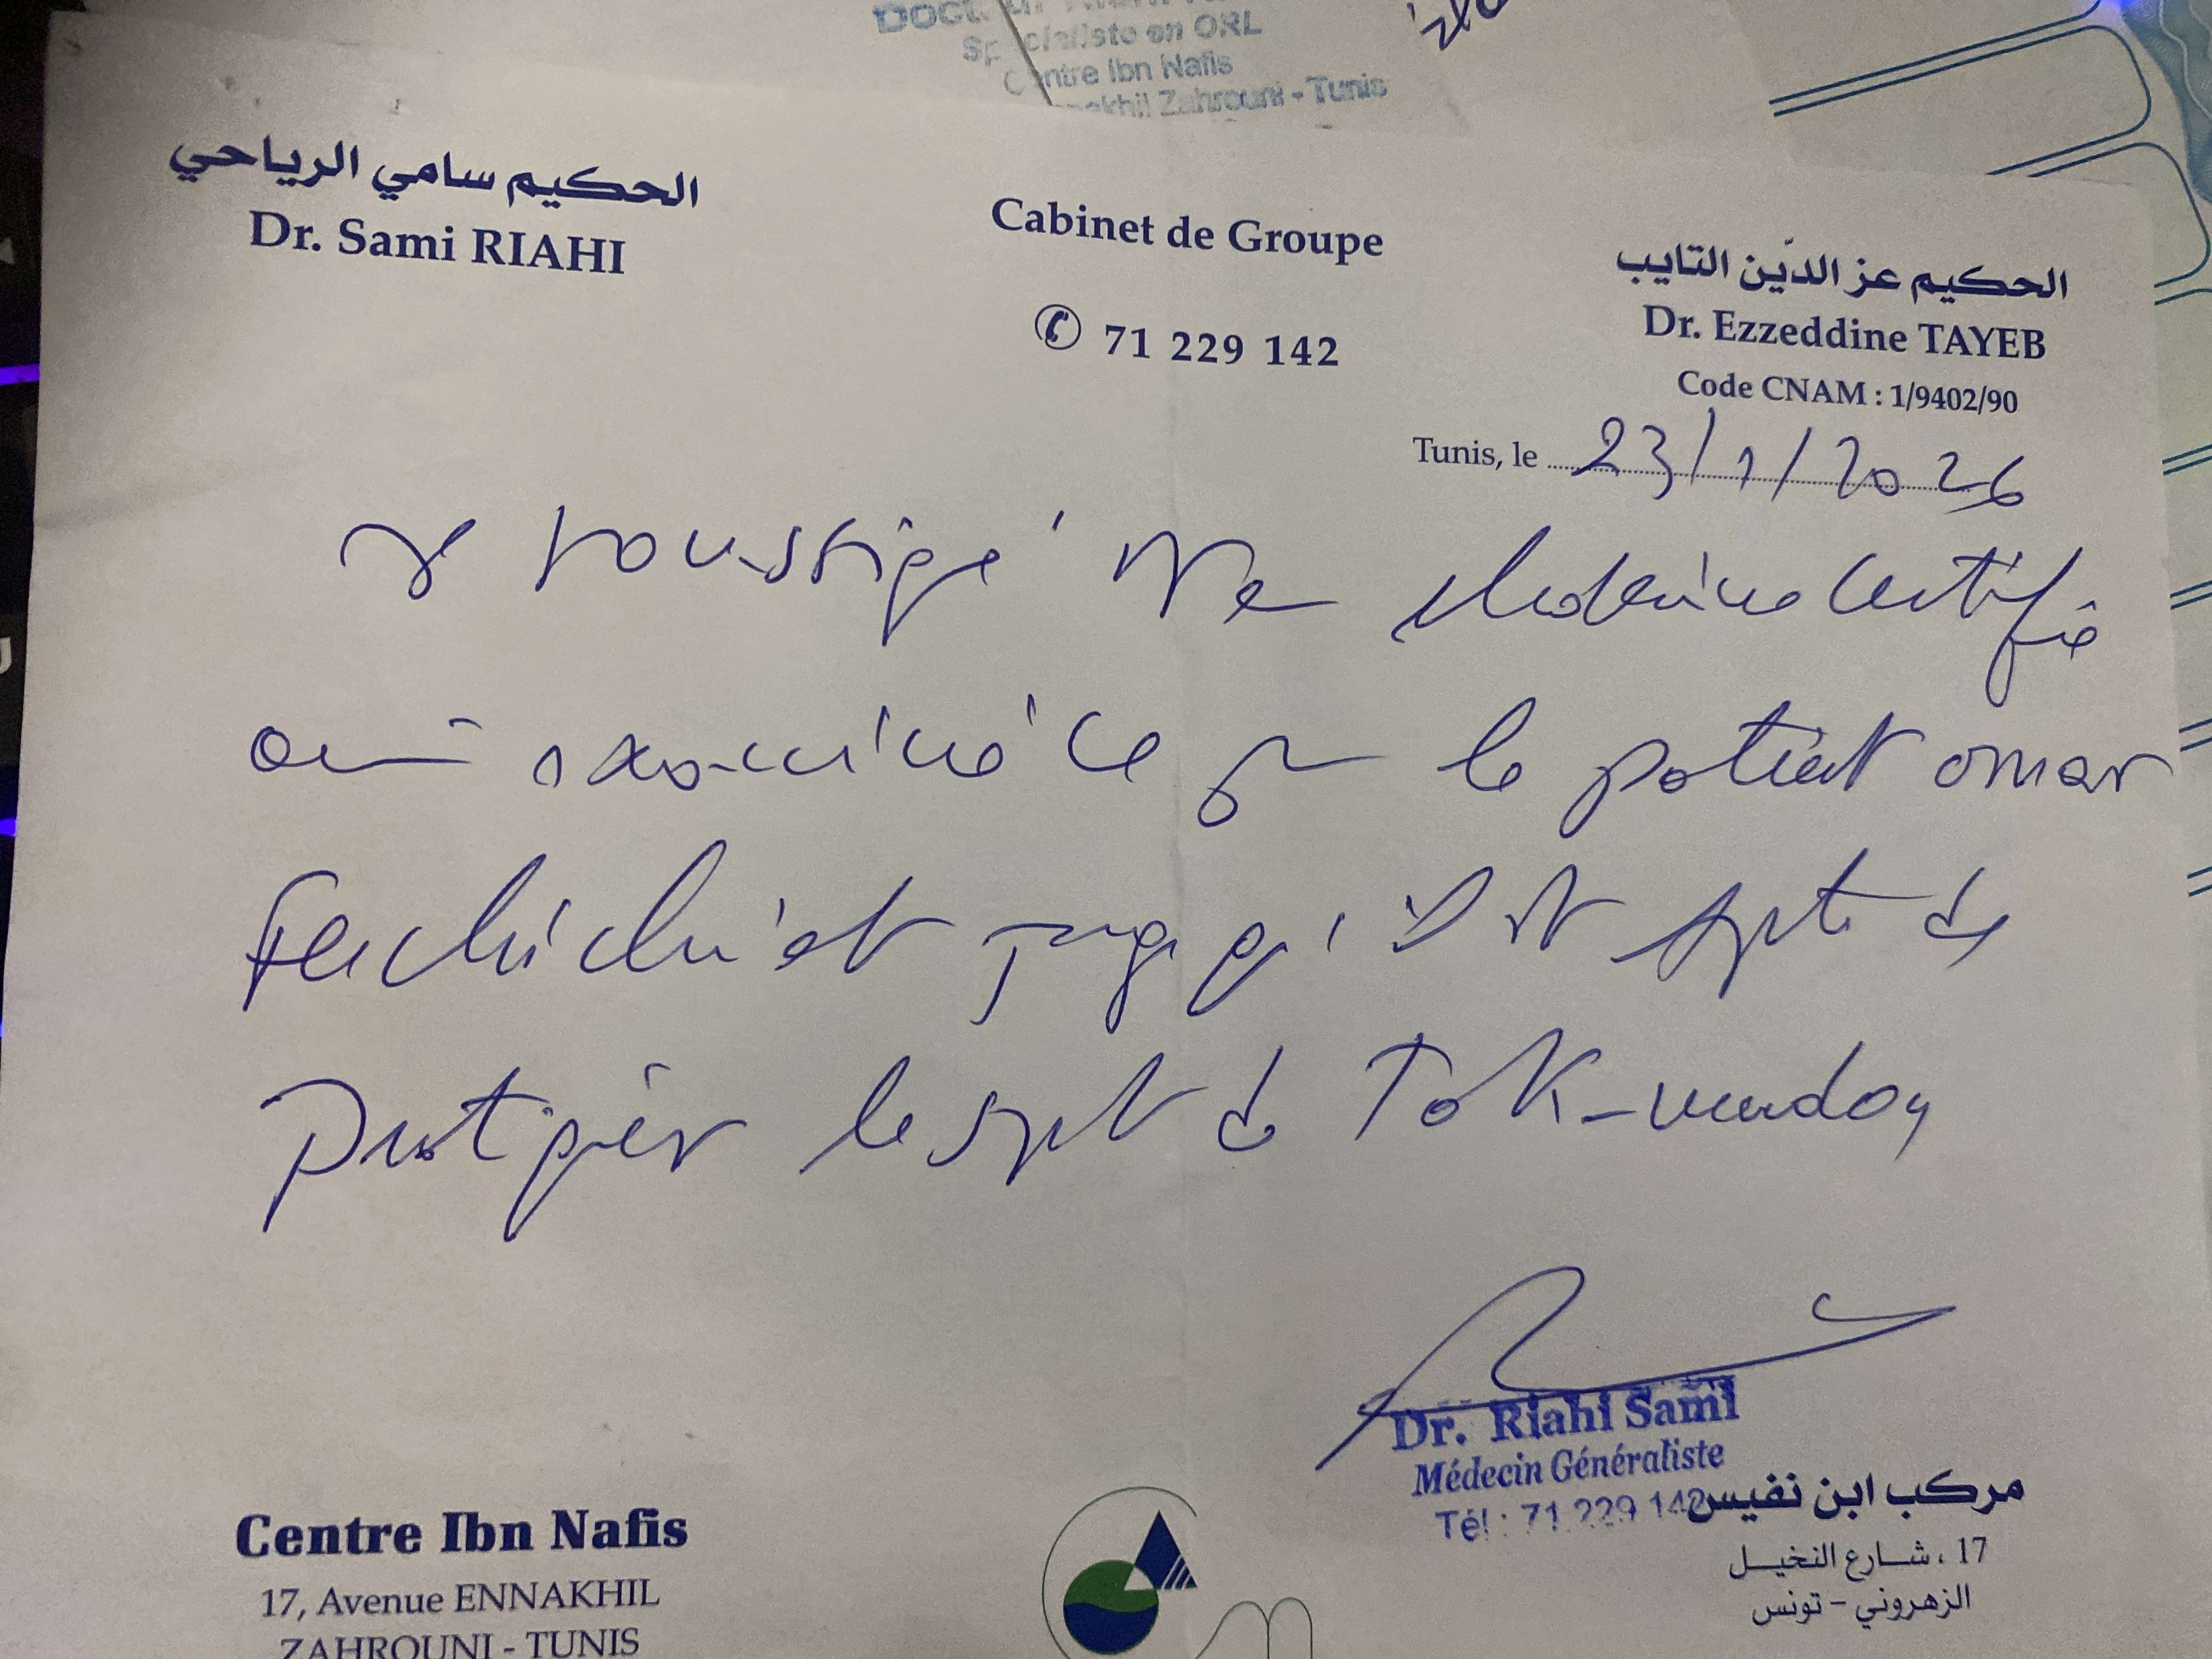 Doct
Spécialiste en ORL
Centre Ibn Nafis
Zahrouni - Tunis
الحكيم سامي الرياحي
Dr. Sami RIAHI
Cabinet de Groupe
71 229 142
الحكيم عز الدّين التايب
Dr. Ezzeddine TAYEB
Code CNAM : 1/9402/90
Tunis, le 23/1/2026
Je soussigné Dr en Médecine certifie
avoir examiné ce jour le patient omar
Ferchichi et juge qu'il est apte de
pratiquer le sport de
Dr. Riahi Sami
Médecin Généraliste
Tél : 71 229 142
Centre Ibn Nafis
17, Avenue ENNAKHIL
ZAHROUNI - TUNIS
مركب ابن نفيس
17 ، شارع النخيل
الزهروني - تونس